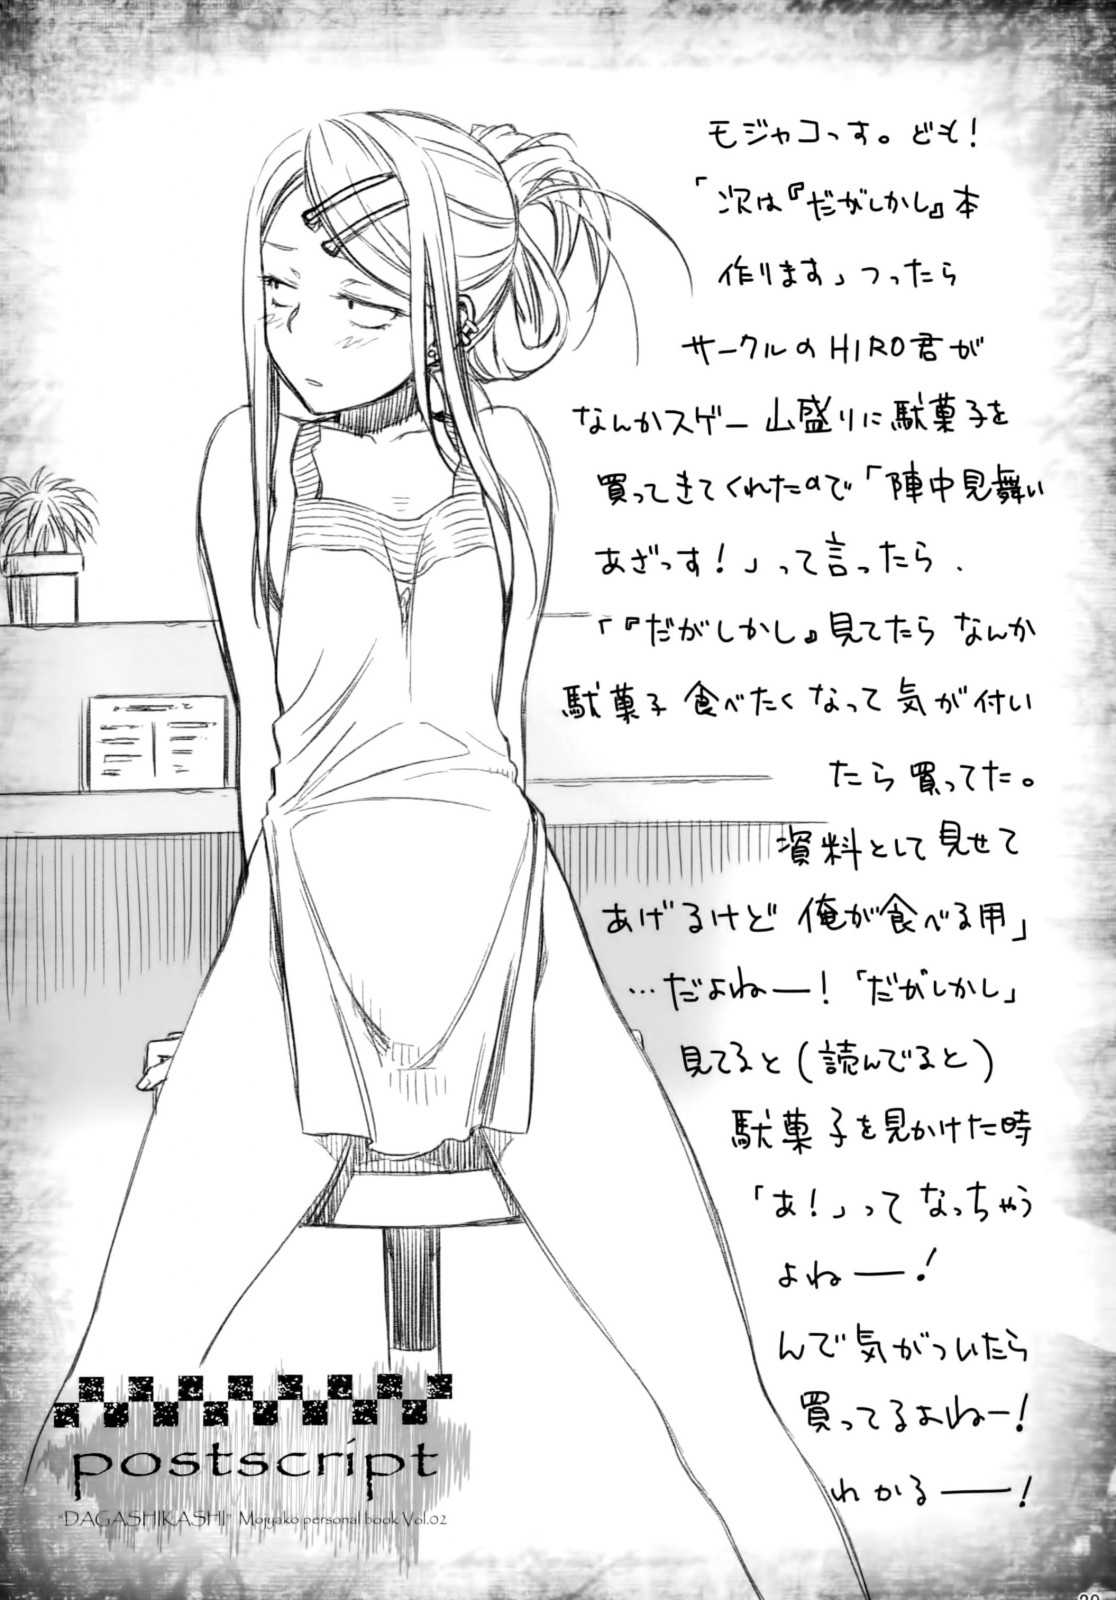 モジャコっす。ども!
「次は『だがしかし』本
作ります」つったら
サークルのHIRO君が
なんかスゲー山盛りに駄菓子を
買ってきてくれたので「陣中見舞い
あざっす!」って言ったら、
「『だがしかし』見てたら なんか
駄菓子 食べたくなって 気が付い
たら 買ってた。
資料として見せて
あげるけど 俺が食べる用」
…だよねー!「だがしかし」
見てると(読んでると)
駄菓子を見かけた時
「あ!」って なっちゃう
よねー!
んで 気がついたら
買ってるよねー!
わかるー!
postscript
"DAGASHIKASHI" Mojyako personal book Vol.02